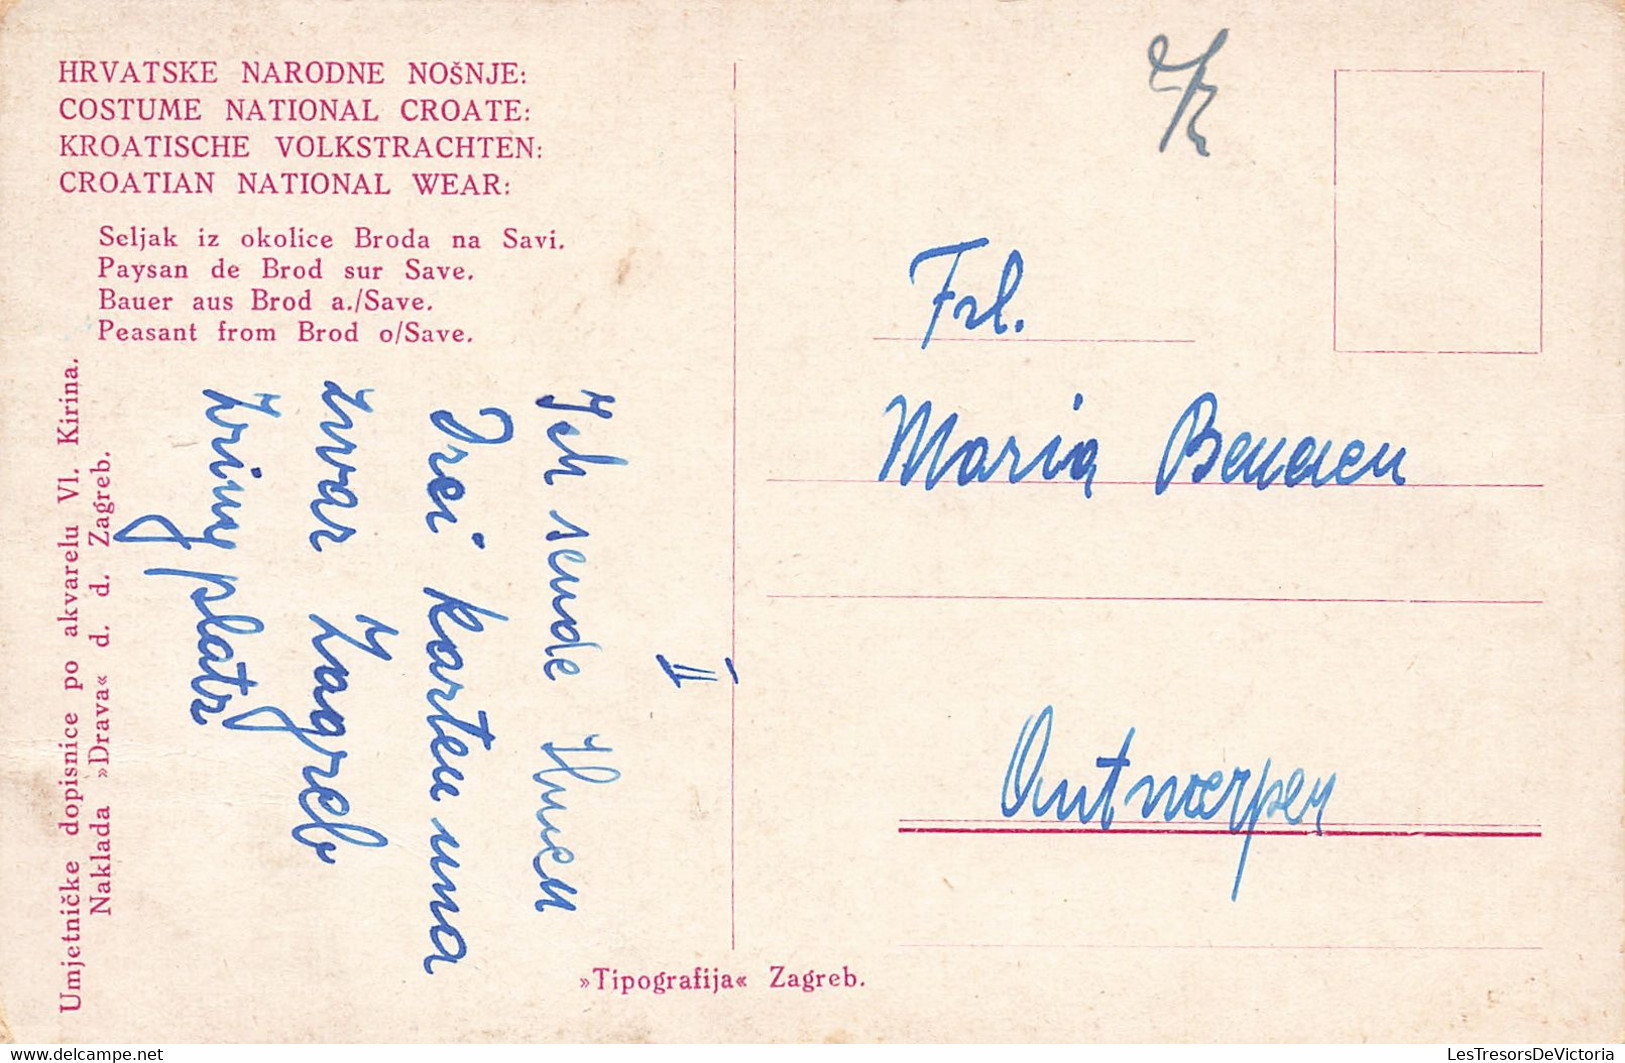 HRVATSKE NARODNE NOŠNJE:
COSTUME NATIONAL CROATE:
KROATISCHE VOLKSTRACHTEN:
CROATIAN NATIONAL WEAR:
Seljak iz okolice Broda na Savi.
Paysan de Brod sur Save.
Bauer aus Brod a./Save.
Peasant from Brod o/Save.
Umjetničke dopisnice po akvarelu Vl. Kirina.
Naklada »Drava« d. d. Zagreb.
II
Ich sende Ihnen
Drei karten und
zwar Zagreb
platz
Frl.
Maria
Antwerpen
»Tipografija« Zagreb.
LesTresorsDeVictoria